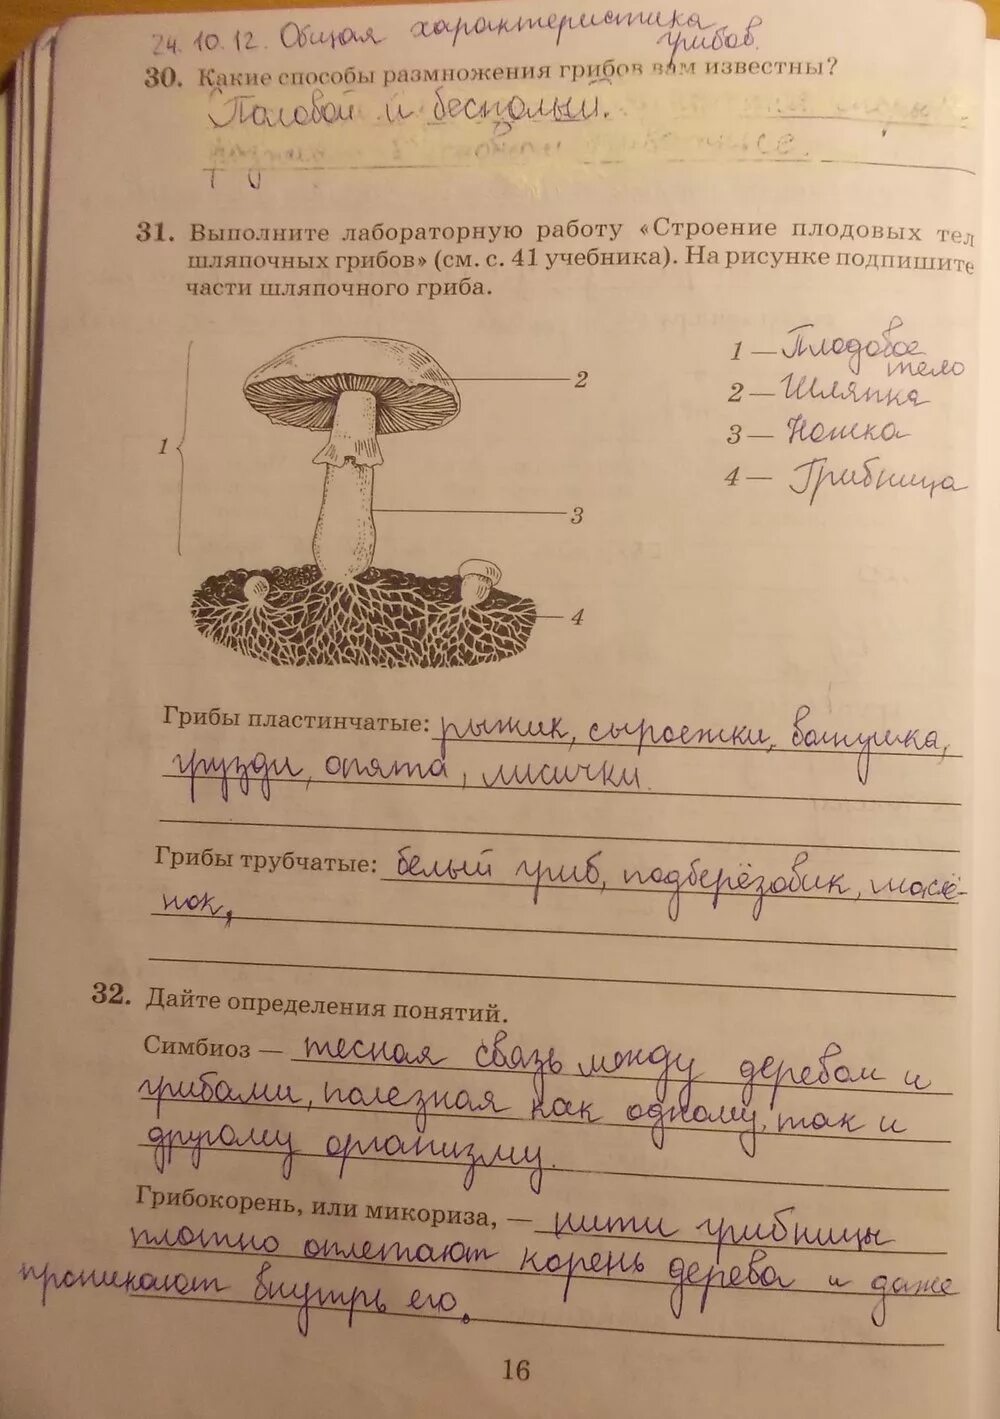 24.10.12. Общая характеристика
грибов.
30. Какие способы размножения грибов вам известны?
Половой и бесполый.
31. Выполните лабораторную работу «Строение плодовых тел
шляпочных грибов» (см. с. 41 учебника). На рисунке подпишите
части шляпочного гриба.
1 — Плодовое
тело
2 — Шляпка
3 — Ножка
4 — Грибница
1
2
3
4
Грибы пластинчатые: рыжик, сыроежки, волнушка,
грузди, опята, лисички.
Грибы трубчатые: белый гриб, подберёзовик, маслё-
нок,
32. Дайте определения понятий.
Симбиоз — тесная связь между деревом и
грибами, полезная как одному, так и
другому организму.
Грибокорень, или микориза, — нити грибницы
плотно оплетают корень дерева и даже
проникают внутрь его.
16